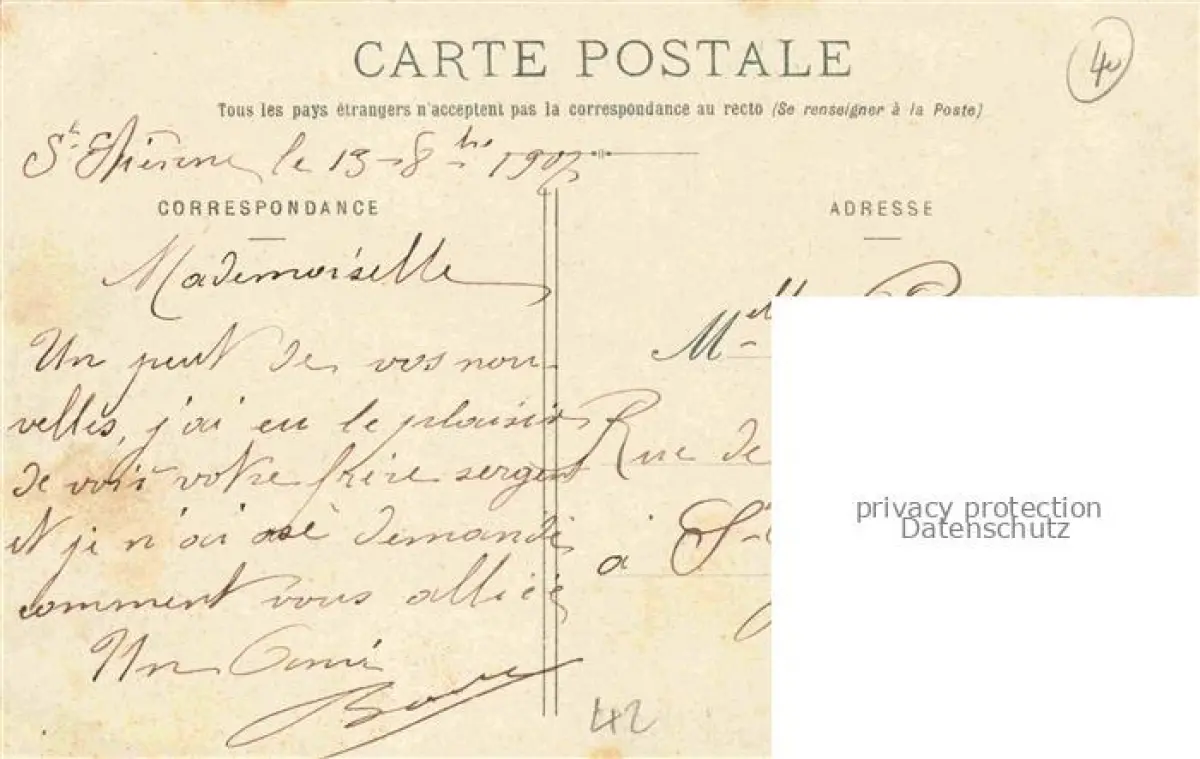 CARTE POSTALE
40
Tous les pays étrangers n'acceptent pas la correspondance au recto (Se renseigner à la Poste)
St Etienne le 13 - 8bre 1907
CORRESPONDANCE
ADRESSE
Mademoiselle
Un peut de vos nou-
velles, j'ai eu le plaisir
de voir votre frère sergent
et je n'ai osé demandé
comment vous alliéé
Un Ami
Melle
Rue de
à St
42
privacy protection
Datenschutz